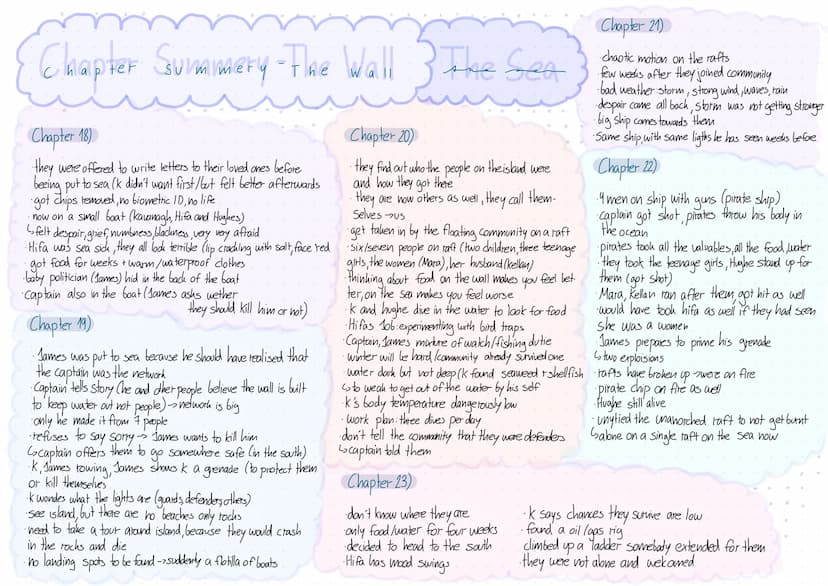 Chapter Summery - The Wall The Sea
Chapter 18)
· they were offered to write letters to their loved ones before
beeing put to sea (k didn't want first/but felt better afterwards
· got chips removed, no biometric ID, no life
· now on a small boat (Kavanagh, Hifa and Hughes)
↳ felt despair, grief, numbness, blackness, very very afraid
· Hifa was sea sick, they all look terrible (lip cracking with salt, face red
· got food for weeks + warm/waterproof clothes
· baby politician (James) hid in the back of the boat
· Captain also in the boat (James asks wether
they should kill him or not)
Chapter 19)
· James was put to sea because he should have realised that
the captain was the network
· Captain tells story (he and other people believe the wall is built
to keep water out not people) → network is big
· only he made it from 7 people
· refuses to say sorry → James wants to kill him
↳ captain offers them to go somewhere safe (in the south)
· k, James towing, James shows k a grenade (to protect them
or kill themselves
· k wondes what the lights are (guards, defenders, others)
· see island, but there are no beaches only rocks
· need to take a tour around island, because they would crash
in the rocks and die
· no landing spots to be found → suddenly a flotilla of boats
Chapter 20)
· they find out who the people on the island were
and how they got there
· they are now others as well, they call them-
selves → us
· get taken in by the floating community on a raft
· six/seven people on raft (two children, three teenage
girls, the women (Mara), her husband (Kellan)
thinking about food on the wall makes you feel bet
ter, on the sea makes you feel worse
· k and hughe dive in the water to look for food
· Hifas Job: experimenting with bird traps
· Captain, James mixture of watch/fishing dutie
· winter will be hard/community already survived one
· water dark but not deep (k found seaweed + shellfish
↳ to weak to get out of the water by his self
· k's body temperature dangerously low
· work plan: three dives per day
don't tell the community that they were defenders
↳ captain told them
Chapter 21)
· chaotic motion on the rafts
· few weeks after they joined community
· bad weather storm, strong wind, waves, rain
· despair came all back, storm was not getting stronger
· big ship comes towards them
· same ship, with same ligths he has seen weeks before
Chapter 22)
· 9 men on ship with guns (pirate ship)
· captain got shot, pirates throw his body in
the ocean
· pirates took all the valuables, all the food, water
· they took the teenage girls, Hughe stand up for
them (got shot)
· Mara, Kellan ran after them, got hit as well
· would have took hifa as well if they had seen
she was a women
· James prepaies to prime his grenade
↳ two explosions
· rafts have broken up → were on fire
· pirate chip on fire as well
· Hughe still alive
· unytied the unanorched raft to not get burnt
↳ alone on a single raft on the sea now
Chapter 23)
· don't know where they are
· only food/water for four weeks
· decided to head to the south
· Hifa has mood swings
· k says chances they survive are low
· found a oil/gas rig
climbed up a ladder somebody extended for them
· they were not alone and welcomed